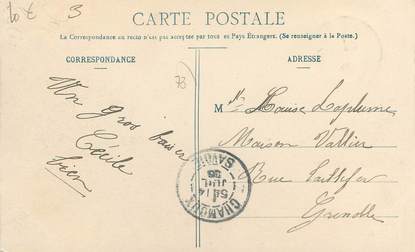 10 € 3
CARTE POSTALE
La Correspondance au recto n'est pas acceptée par tous les Pays Étrangers. (Se renseigner à la Poste.)
CORRESPONDANCE
ADRESSE
73
Un gros baiser
Cécile
M lle Louise Laplume
Maison Vallier
Rue
Grenoble
CHAMOUX
SAVOIE
14
JUIL